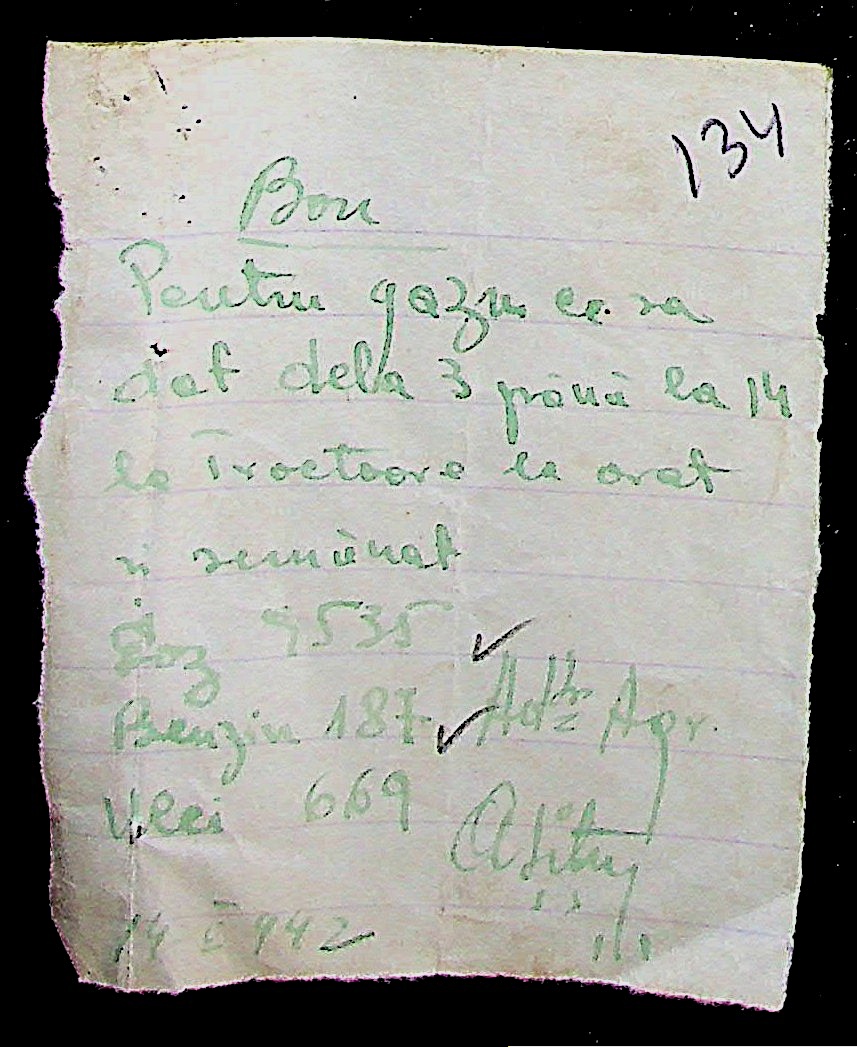 134
Bon
Pentru gazu ce sa
dat dela 3 pănă la 14
la Tractoare la arat
si semănat
Gaz 9535
Benzin 187
Ulei 669
Agr.
14 5 942